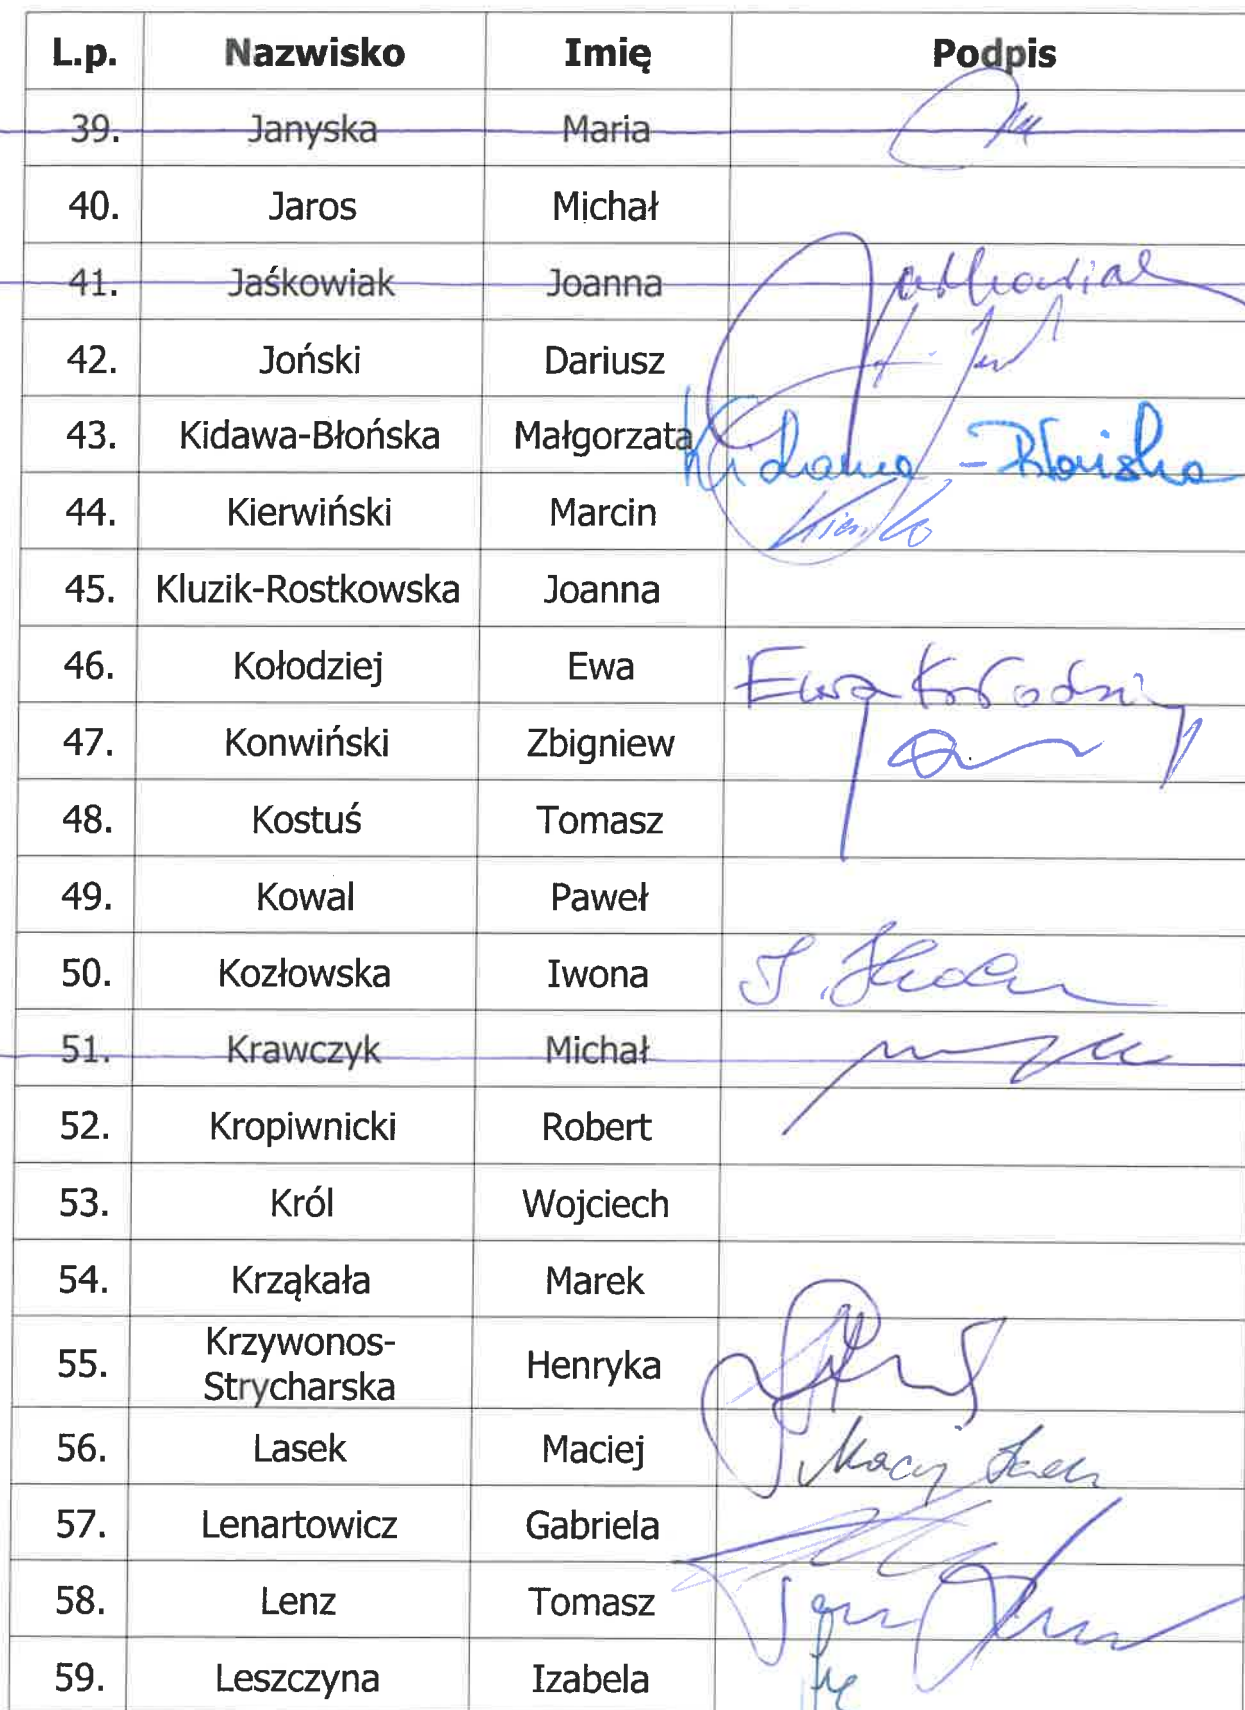 L.p. Nazwisko Imię Podpis
39. Janyska Maria
40. Jaros Michał
41. Jaśkowiak Joanna Jaśkowiak
42. Joński Dariusz
43. Kidawa-Błońska Małgorzata Kidawa-Błońska
44. Kierwiński Marcin
45. Kluzik-Rostkowska Joanna
46. Kołodziej Ewa Ewa Kołodziej
47. Konwiński Zbigniew
48. Kostuś Tomasz
49. Kowal Paweł
50. Kozłowska Iwona
51. Krawczyk Michał
52. Kropiwnicki Robert
53. Król Wojciech
54. Krząkała Marek
55. Krzywonos-
Strycharska Henryka
56. Lasek Maciej Maciej Lasek
57. Lenartowicz Gabriela
58. Lenz Tomasz
59. Leszczyna Izabela